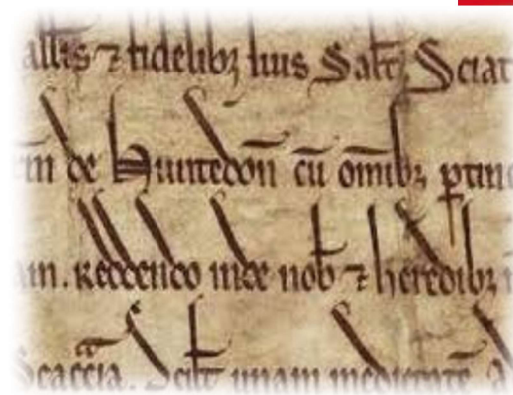 allis ⁊ fidelibꝫ suis Salt̄. Sciat
m̄ de Huntedon̄ cū om̄ibꝫ ꝑtin
am. Reddendo inde nob̄ ⁊ heredibꝫ
Scaccia. Scilt̄ unam medietatē